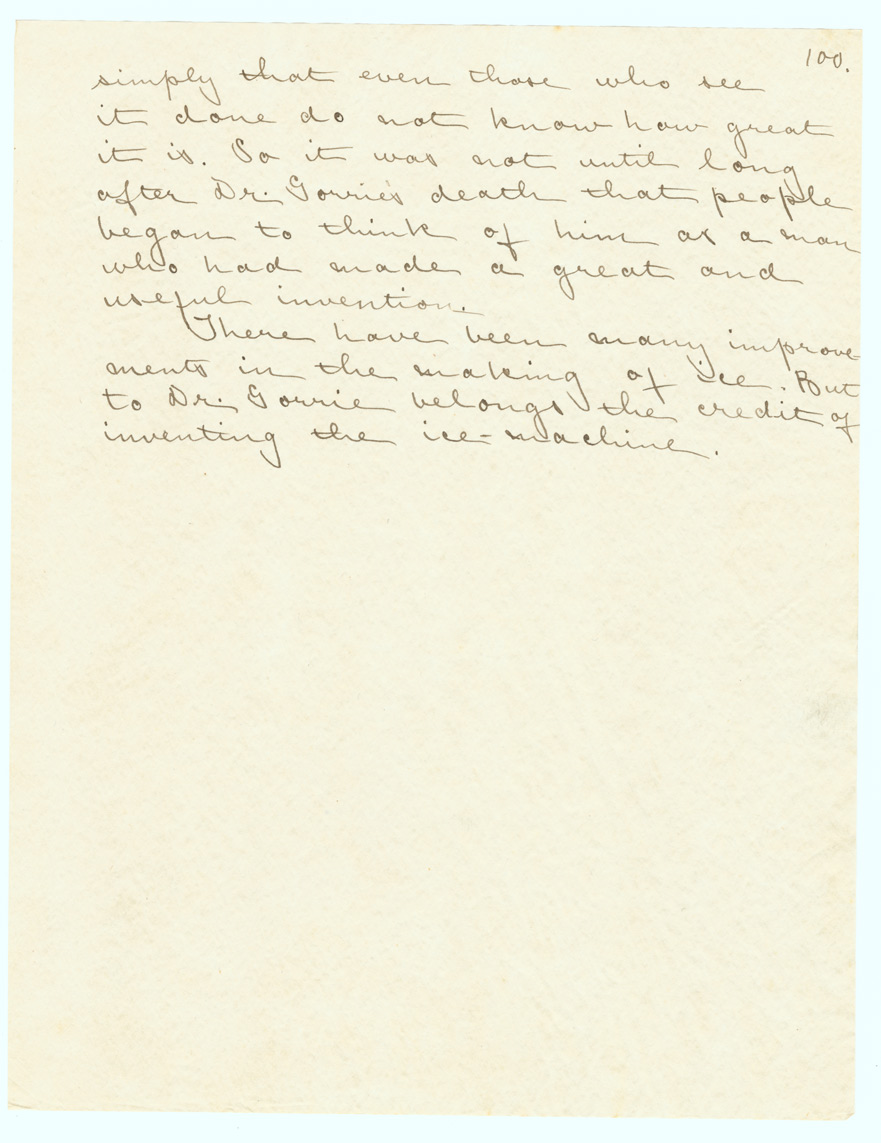 100.
simply that even those who see
it done do not know how great
it is. So it was not until long
after Dr. Gorrie's death that people
began to think of him as a man
who had made a great and
useful invention.
There have been many improve-
ments in the making of ice. But
to Dr. Gorrie belongs the credit of
inventing the ice-machine.